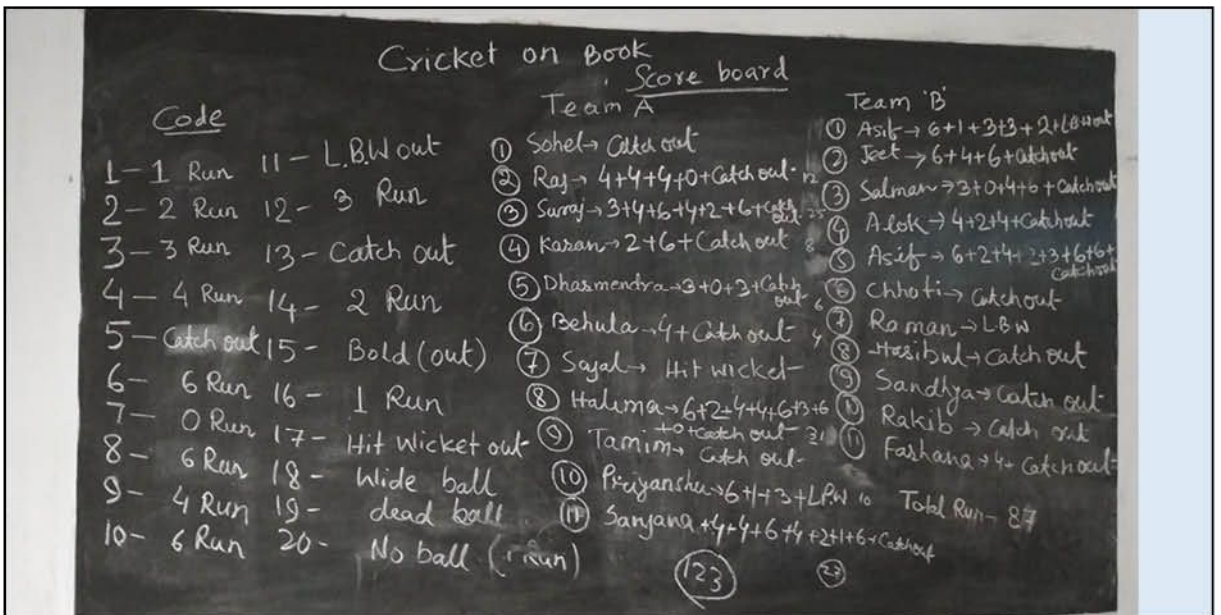 Cricket on Book
Score board
Code
1 - 1 Run
2 - 2 Run
3 - 3 Run
4 - 4 Run
5 - Catch out
6 - 6 Run
7 - 0 Run
8 - 6 Run
9 - 4 Run
10 - 6 Run
11 - L.B.W out
12 - 3 Run
13 - Catch out
14 - 2 Run
15 - Bold (out)
16 - 1 Run
17 - Hit Wicket out
18 - Wide ball
19 - dead ball
20 - No ball (1 Run)
Team A
① Sohel → Catch out
② Raj → 4+4+4+0+Catch out - 12
③ Surraj → 3+4+6+4+2+6+Catch
out - 25
④ Karan → 2+6+Catch out 8
⑤ Dharmendra → 3+0+3+Catch
out 6
⑥ Behula → 4+Catch out - 4
⑦ Sajal → Hit wicket -
⑧ Halima → 6+2+4+4+6+3+6
+0+Catch out - 31
⑨ Tamim → Catch out -
⑩ Priyanshu → 6+1+3+LBW 10
⑪ Sanjana +4+4+6+4+2+1+6+Catchout
27
123
Team 'B'
① Asif → 6+1+3+3+2+LBWout
② Jeet → 6+4+6+Catchout
③ Salman → 3+0+4+6+Catchout
④ Alok → 4+2+4+Catchout
⑤ Asif → 6+2+4+2+3+6+6+
Catchout
⑥ Chhoti → Catchout -
⑦ Raman → LBW
⑧ Hasibul → Catch out
⑨ Sandhya → Catch out -
⑩ Rakib → Catch out
⑪ Farhana → 4+Catchout -
Total Run - 87